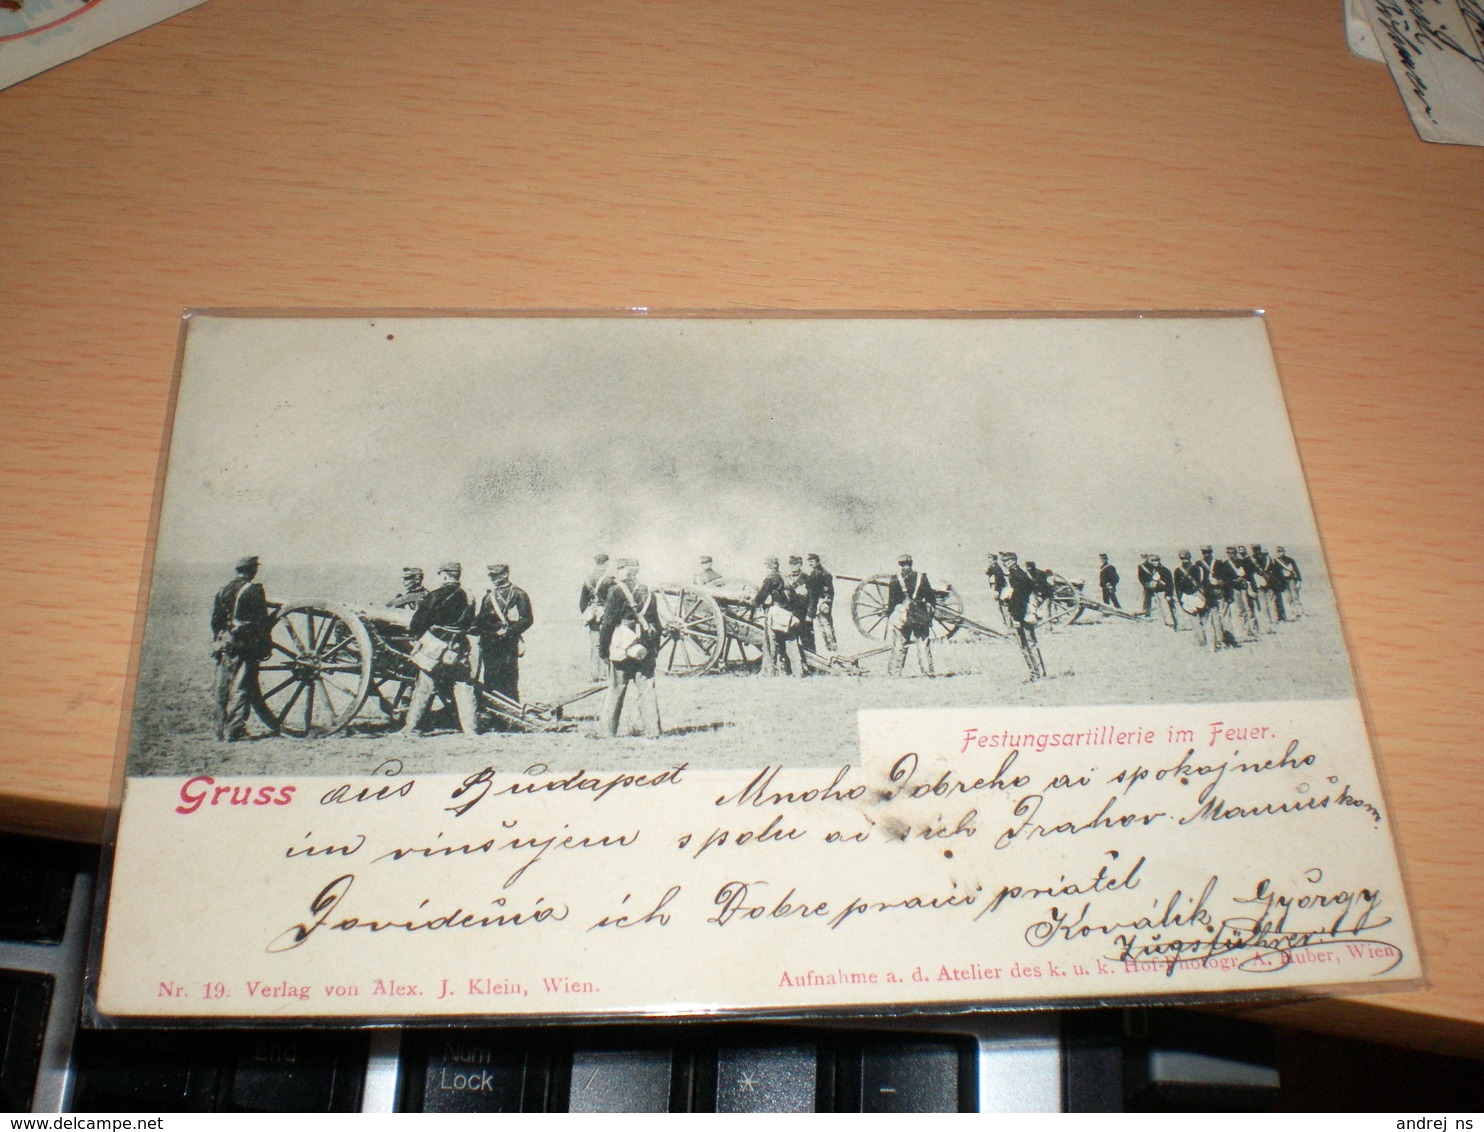 Festungsartillerie im Feuer.
Gruss aus Budapest Mnoho Dobreho ai spokojneho
im vinšujem spolu ai sich Frahov. Mamuškom.
Dovidenia ich Dobre praici priatěl
Koválik György
Zugsführer
Nr. 19. Verlag von Alex. J. Klein, Wien.
Aufnahme a. d. Atelier des k. u. k. Hof-Photogr. A. Huber, Wien
End
Num
Lock
/
*
-
andrej ns
www.delcampe.net